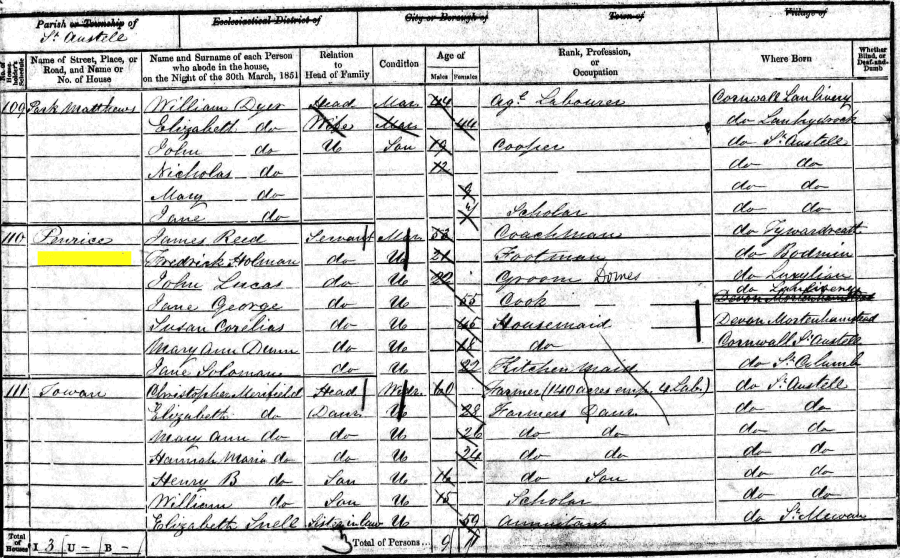 Parish or Township of
St Austell
Ecclesiastical District of
City or Borough of
Town of
Village of
No. of Householder's Schedule
Name of Street, Place, or Road, and Name or No. of House
Name and Surname of each Person who abode in the house, on the Night of the 30th March, 1851
Relation to Head of Family
Condition
Age of
Males
Females
Rank, Profession, or Occupation
Where Born
Whether Blind, or Deaf-and-Dumb
109 Park Matthews William Dyer Head Mar 44 Agl Labourer Cornwall Lanlivery
Elizabeth do Wife Mar 44 do Lanhydrock
John do U Son 19 Cooper do St Austell
Nicholas do 12 do do
Mary do do do
Jane do Scholar do do
110 Penrice James Reed Servant Mar Coachman do Tywardreath
Fredrick Holman do U 21 Footman do Bodmin
John Lucas do U 22 Groom Domes do Luxylian
do Lanlivery
Jane George do U 55 Cook Devon Mortenhamstead
Susan Corelias do U 45 Housemaid Devon Mortenhamstead
Mary Ann Dunn do U 18 do Cornwall St Austell
Jane Soloman do U 22 Kitchen Maid do St Columb
111 Towan Christopher Merifield Head Widr 60 Farmer (140 acres emp 4 Labs) do St Austell
Elizabeth do Daur U 28 Farmers Daur do do
Mary Ann do do U 26 do do do do
Hannah Maria do do U 24 do do do do
Henry B do Son U 16 do Son do do
William do Son U 15 Scholar do do
Elizabeth Snell Sister in law U 59 Annuitant do St Mewan
Total of Houses I 3 U - B -
Total of Persons 9 11